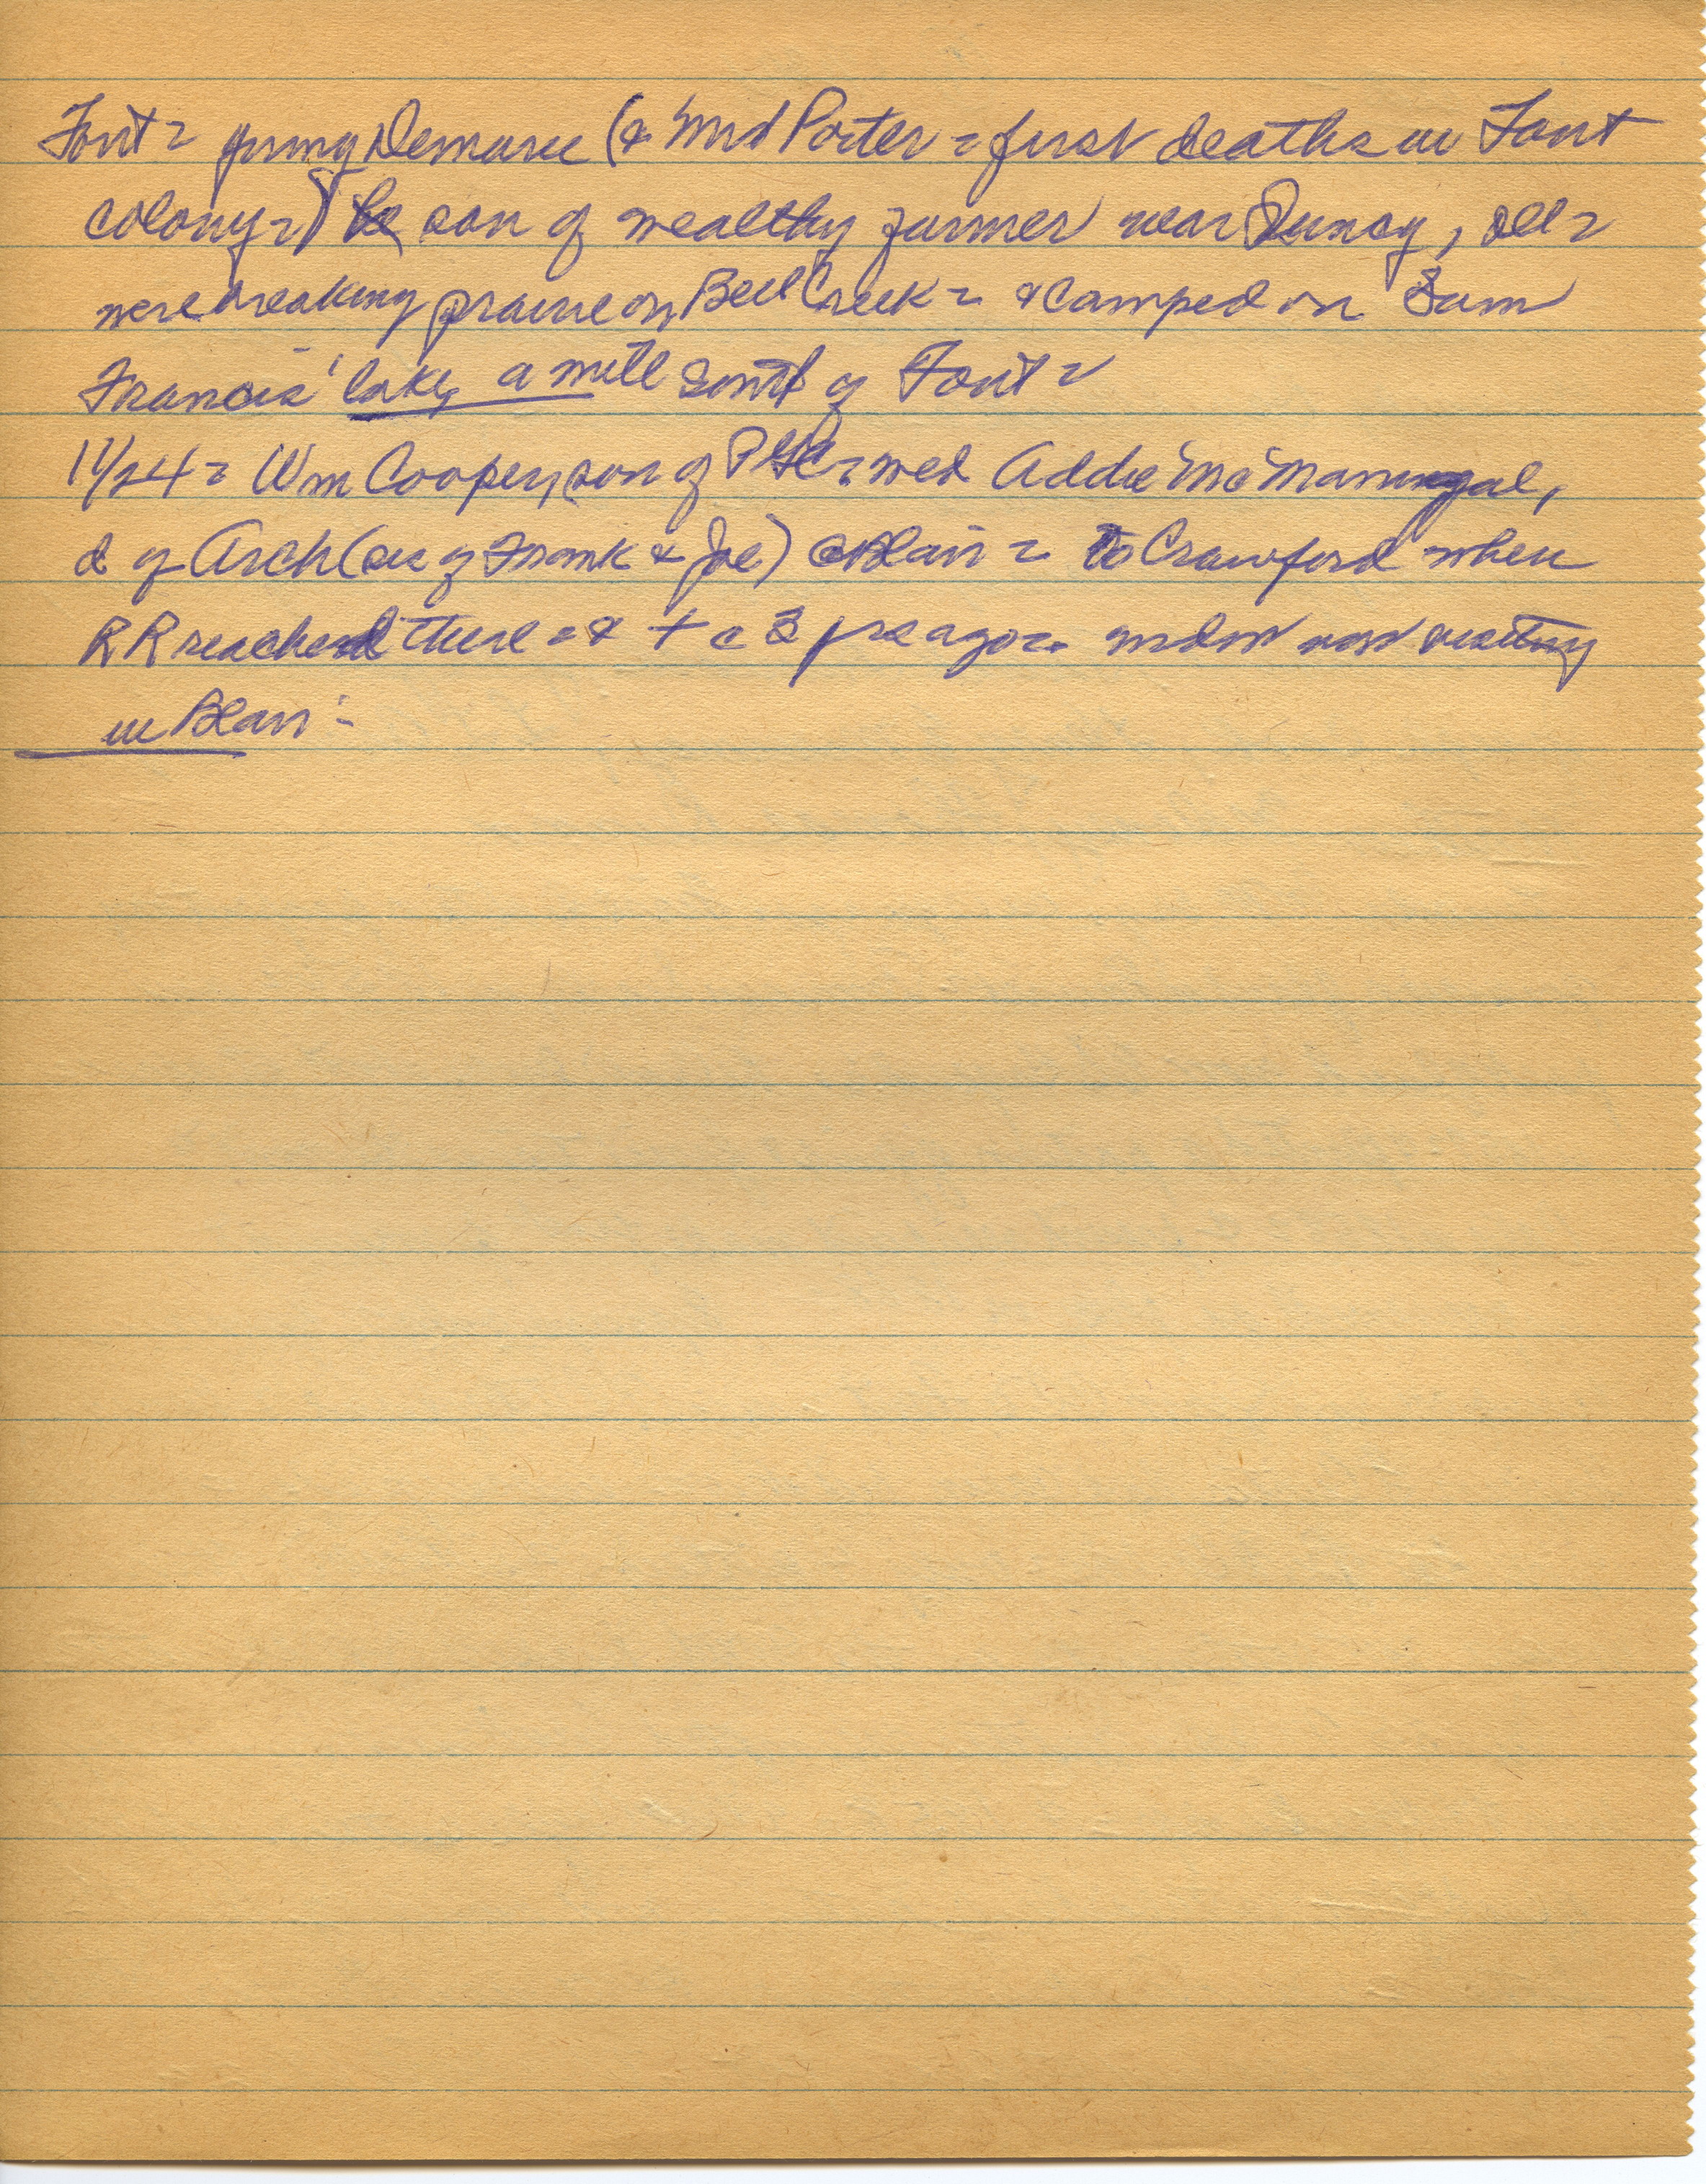 Font = young Demaree (& Mrs Porter = first deaths in Font
colony =) son of wealthy farmer near Quincy, Ill =
were breaking prairie on Bell Creek = & camped on Sam
Francis' lake, a mile South of Font =
11/24 = Wm Cooper, son of P = wed Addie McManigal,
d of Arch (sis of Frank & Joe) @ Blair = to Crawford when
RR reached there = & + c 3 yrs ago = widow now visiting
in Blair =